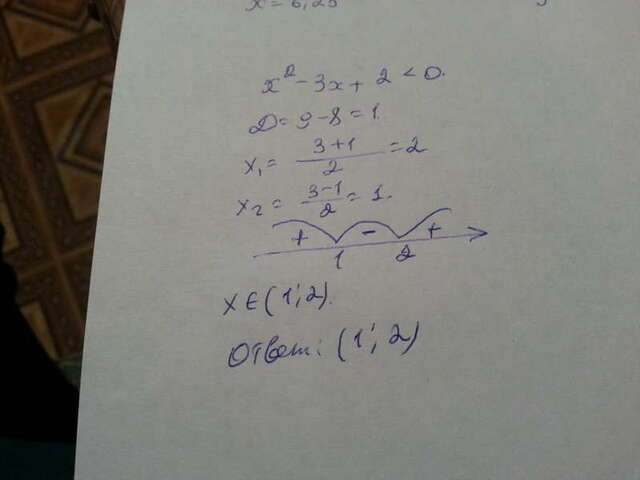 x = 6,25
x² - 3x + 2 < 0.
D = 9 - 8 = 1.
x₁ = (3+1)/2 = 2
x₂ = (3-1)/2 = 1.
+ - +
1 2
x ∈ (1; 2).
Ответ: (1; 2)